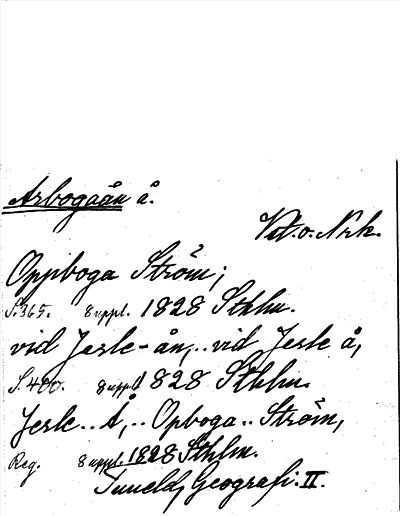 Arbogaån å.
Vstm. o. Nrk.
Oppboga Ström;
S. 365. 8 uppl. 1828 Sthlm.
vid Jerle-ån,.. vid Jerle å,
S. 400. 8 uppl 1828 Sthlm.
Jerle.. Å,.. Opboga.. Ström,
Reg. 8 uppl. 1828 Sthlm.
Tuneld, Geografi. II.